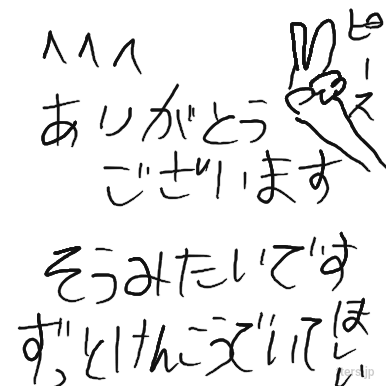 へへへ
ピース
ありがとう
ございます
そうみたいです
ずっとけんこうでいてほしい